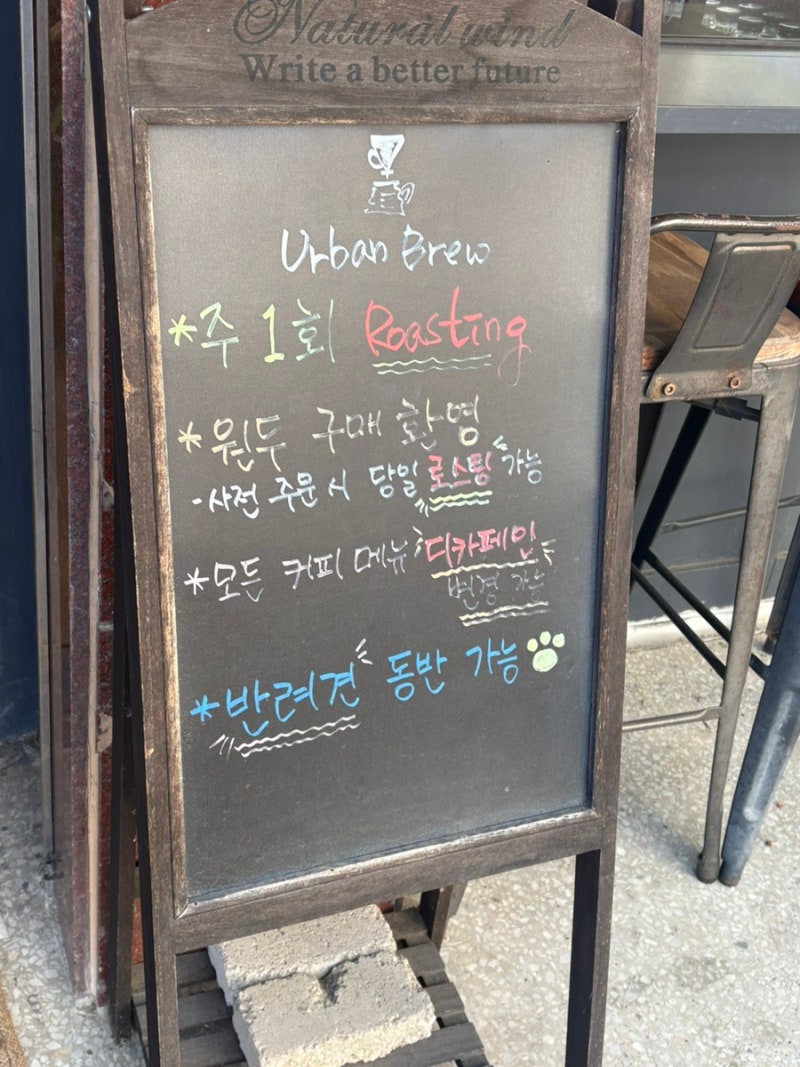 Natural wind
Write a better future
Urban Brew
*주 1회 Roasting
*원두 구매 환영
-사전 주문시 당일 로스팅 가능
*모든 커피 메뉴 디카페인
변경 가능
*반려견 동반 가능